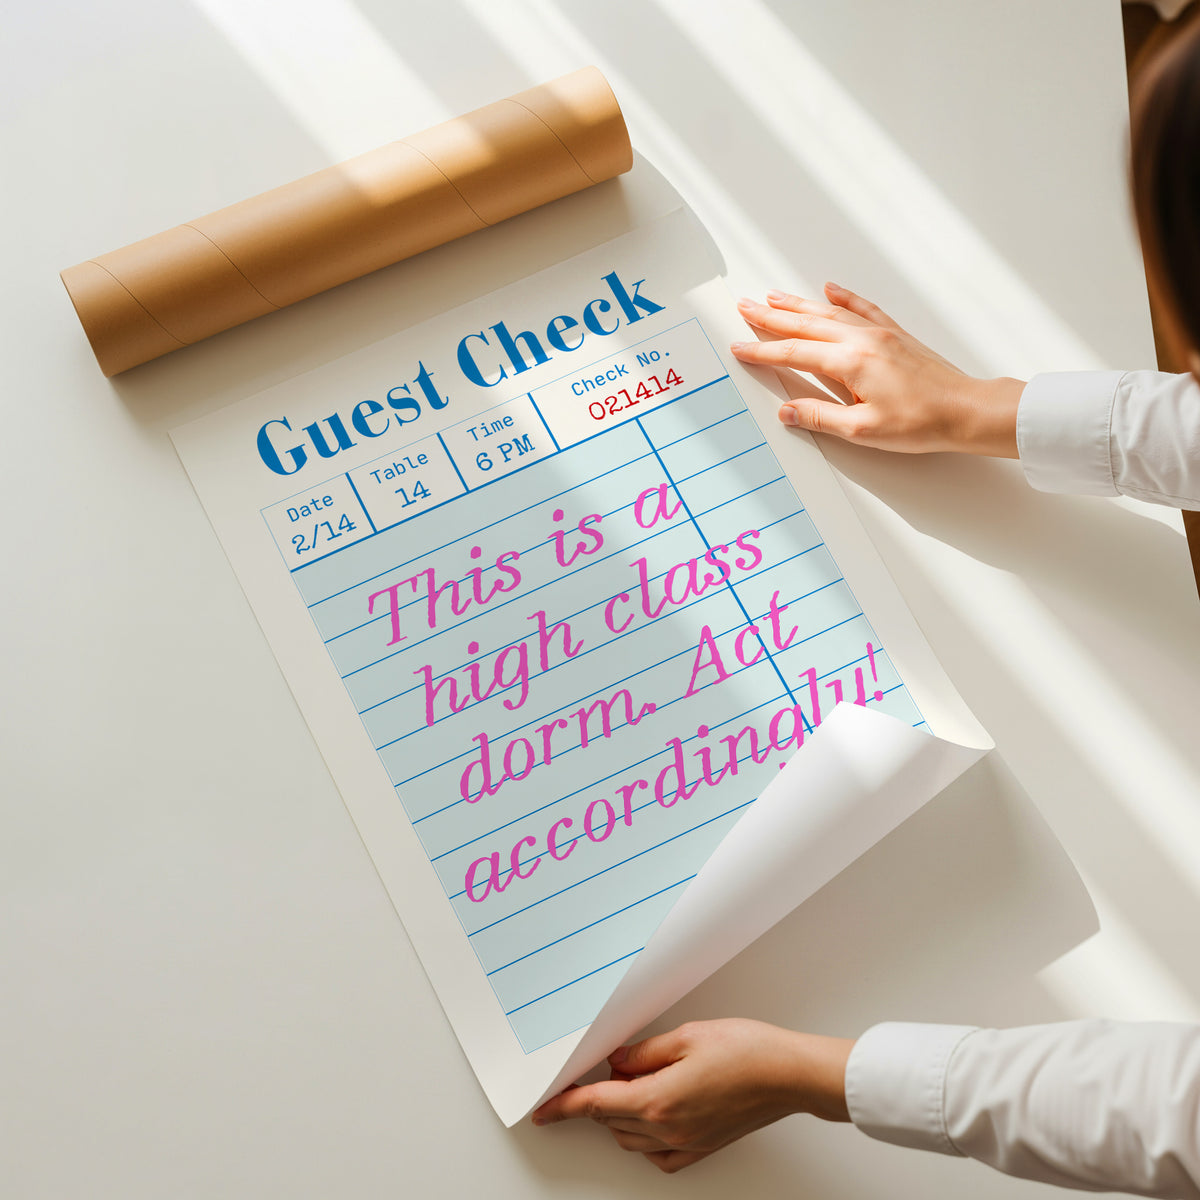 Guest Check
Date Table Time Check No.
2/14 14 6 PM 021414
This is a
high class
dorm. Act
accordingly!